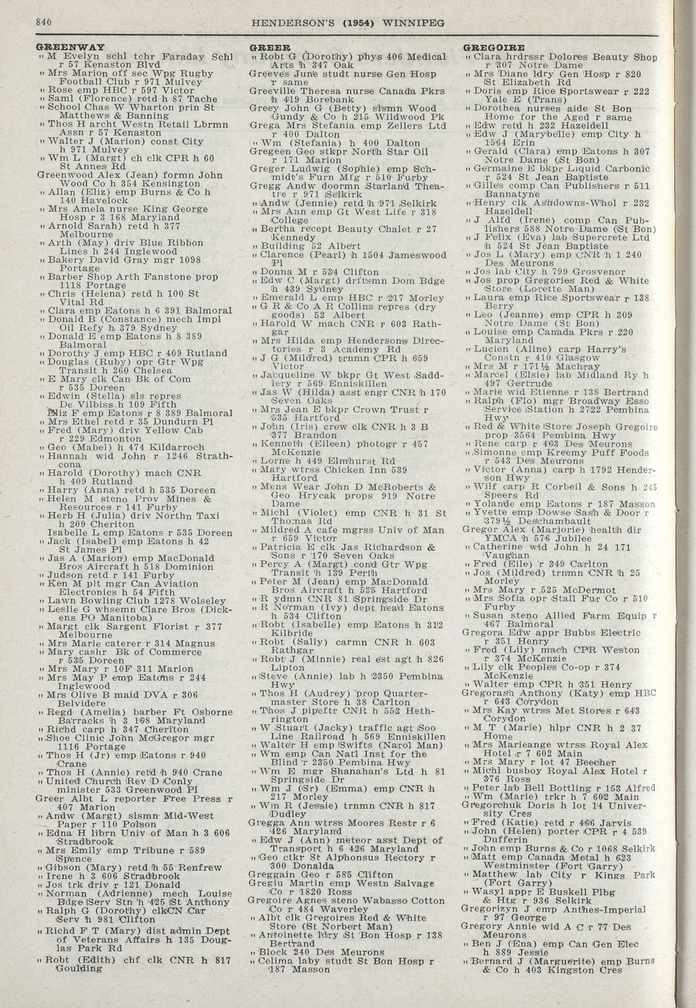 840
HENDERSON'S (1954) WINNIPEG
GREENWAY
" M Evelyn schl tchr Faraday Schl
r 57 Kenaston Blvd
" Mrs Marion off sec Wpg Rugby
Football Club r 971 Mulvey
" Rose emp HBC r 597 Victor
" Saml (Florence) retd h 87 Tache
" School Chas W Wharton prin St
Matthews & Banning
" Thos H archt Westn Retail Lbrmn
Assn r 57 Kenaston
" Walter J (Marion) const City
h 971 Mulvey
" Wm L (Margt) ch clk CPR h 60
St Annes Rd
Greenwood Alex (Jean) formn John
Wood Co h 354 Kensington
" Allan (Eliz) emp Burns & Co h
140 Havelock
" Mrs Amela nurse King George
Hosp r 3 168 Maryland
" Arnold Sarah) retd h 377
Melbourne
" Arth (May) driv Blue Ribbon
Lines h 244 Inglewood
" Bakery David Gray mgr 1098
Portage
" Barber Shop Arth Fanstone prop
1118 Portage
" Chris (Helena) retd h 100 St
Vital Rd
" Clara emp Eatons h 6 391 Balmoral
" Donald B (Constance) mech Impl
Oil Refy h 379 Sydney
" Donald E emp Eatons h 8 389
Balmoral
" Dorothy J emp HBC r 409 Rutland
" Douglas (Ruby) opr Gtr Wpg
Transit h 260 Chelsea
" E Mary clk Can Bk of Com
r 535 Doreen
" Edwin (Stella) sls repres
De Vilbiss h 109 Fifth
" Eliz F emp Eatons r 8 389 Balmoral
" Mrs Ethel retd r 35 Dundurn Pl
" Fred (Mary) driv Yellow Cab
r 229 Edmonton
" Geo (Mabel) h 474 Kildarroch
" Hannah wid John r 1246 Strath-
cona
" Harold (Dorothy) mach CNR
h 409 Rutland
" Harry (Anna) retd h 535 Doreen
" Helen M steno Prov Mines &
Resources r 141 Furby
" Herb H (Julia) driv Northn Taxi
h 209 Cheriton
Isabelle L emp Eatons r 535 Doreen
" Jack (Isabel) emp Eatons h 42
St James Pl
" Jas A (Marion) emp MacDonald
Bros Aircraft h 518 Dominion
" Judson retd r 141 Furby
" Ken M plt mgr Can Aviation
Electronics h 54 Fifth
" Lawn Bowling Club 1278 Wolseley
" Leslie G whsemn Clare Bros (Dick-
ens PO Manitoba)
" Margt clk Sargent Florist r 377
Melbourne
" Mrs Marie caterer r 314 Magnus
" Mary cashr Bk of Commerce
r 535 Doreen
" Mrs Mary r 10F 311 Marion
" Mrs May P emp Eatons r 244
Inglewood
" Mrs Olive B maid DVA r 306
Belvidere
" Regd (Amelia) barber Ft Osborne
Barracks h 3 168 Maryland
" Richd carp h 347 Cheriton
" Shoe Clinic John McGregor mgr
1116 Portage
" Thos H (Jr) emp Eatons r 940
Crane
" Thos H (Annie) retd h 940 Crane
" United Church (Rev D Conly
minister 533 Greenwood Pl
Greer Albt L reporter Free Press r
407 Marion
" Andw (Margt) slsmn Mid-West
Paper r 110 Polson
" Edna H librn Univ of Man h 3 606
Stradbrook
" Mrs Emily emp Tribune r 589
Spence
" Gibson (Mary) retd h 55 Renfrew
" Irene h 3 606 Stradbrook
" Jos trk driv r 121 Donald
" Norman (Adrienne) mech Louise
Bdge Serv Stn h 425 St Anthony
" Ralph G (Dorothy) clkCN Car
Serv h 981 Clifton
" Richd F T (Mary) dist admin Dept
of Veterans Affairs h 135 Doug-
las Park Rd
" Robt (Edith) chf clk CNR h 817
Goulding
GREER
" Robt G (Dorothy) phys 406 Medical
Arts h 347 Oak
Greeves June studt nurse Gen Hosp
r same
Greeville Theresa nurse Canada Pkrs
h 419 Borebank
Greey John G (Betty) slsmn Wood
Gundy & Co h 215 Wildwood Pk
Grega Mrs Stefania emp Zellers Ltd
r 400 Dalton
" Wm (Stefania) h 400 Dalton
Gregeen Geo stkpr North Star Oil
r 171 Marion
Greger Ludwig (Sophie) emp Sch-
midt's Furn Mfg r 510 Furby
Gregg Andw doormn Starland Thea-
tre r 971 Selkirk
" Andw (Jennie) retd h 971 Selkirk
" Mrs Ann emp Gt West Life r 318
College
" Bertha recept Beauty Chalet r 27
Kennedy
" Building 52 Albert
" Clarence (Pearl) h 1504 Jameswood
Pl
" Donna M r 534 Clifton
" Edw C (Margt) drftsmn Dom Bdge
h 439 Sydney
" Emerald L emp HBC r 217 Morley
" G R & Co A R Collins repres (dry
goods) 52 Albert
" Harold W mach CNR r 603 Rath-
gar
" Mrs Hilda emp Hendersons Direc-
tories r 3 Academy Rd
" J G (Mildred) trnmn CPR h 659
Victor
" Jacqueline W bkpr Gt West Sadd-
lery r 569 Enniskillen
" Jas W (Hilda) asst engr CNR h 170
Seven Oaks
" Mrs Jean E bkpr Crown Trust r
535 Hartford
" John (Iris) crew clk CNR h 3 B
377 Brandon
" Kenneth (Eileen) photogr r 457
McKenzie
" Lorne h 449 Elmhurst Rd
" Mary wtrss Chicken Inn 539
Hartford
" Mens Wear John D McRoberts &
Geo Hrycak props 919 Notre
Dame
" Michl (Violet) emp CNR h 31 St
Thomas Rd
" Mildred A cafe mgrss Univ of Man
r 659 Victor
" Patricia E clk Jas Richardson &
Sons r 170 Seven Oaks
" Percy A (Margt) cond Gtr Wpg
Transit h 139 Perth
" Peter M (Jean) emp MacDonald
Bros Aircraft h 535 Hartford
" R ydmn CNR 81 Springside Dr
" R Norman (Ivy) dept head Eatons
h 534 Clifton
" Robt (Isabelle) emp Eatons h 312
Kilbride
" Robt (Sally) carmn CNR h 603
Rathgar
" Robt J (Minnie) real est agt h 826
Lipton
" Steve (Annie) lab h 2350 Pembina
Hwy
" Thos H (Audrey) prop Quarter-
master Store h 38 Carlton
" Thos J pipeftr CNR h 552 Heth-
rington
" W Stuart (Jacky) traffic agt Soo
Line Railroad h 569 Enniskillen
" Walter H emp Swifts (Narol Man)
" Wm emp Can Natl Inst for the
Blind r 2350 Pembina Hwy
" Wm E mgr Shanahan's Ltd h 81
Springside Dr
" Wm J (Sr) (Emma) emp CNR h
217 Morley
" Wm R (Jessie) trnmn CNR h 817
Dudley
Gregga Ann wtrss Moores Restr r 6
426 Maryland
" Edw J (Ann) meteor asst Dept of
Transport h 6 426 Maryland
" Geo ctkr St Alphonsus Rectory r
300 Donalda
Greggain Geo r 585 Clifton
Gregiu Martin emp Westn Salvage
Co r 1820 Ross
Gregoire Agnes steno Wabasso Cotton
Co r 484 Waverley
" Albt clk Gregoires Red & White
Store (St Norbert Man)
" Antoinette ldry St Bon Hosp r 138
Bertrand
" Block 240 Des Meurons
" Celima laby studt St Bon Hosp r
187 Masson
GREGOIRE
" Clara hrdrssr Dolores Beauty Shop
r 307 Notre Dame
" Mrs Diane ldry Gen Hosp r 820
St Elizabeth Rd
" Doris emp Rice Sportswear r 222
Yale E (Trans)
" Dorothea nurses aide St Bon
Home for the Aged r same
" Edw retd h 232 Hazeldell
" Edw J (Marybelle) emp City h
1564 Erin
" Gerald (Clara) emp Eatons h 307
Notre Dame (St Bon)
" Germaine E bkpr Liquid Carbonic
r 524 St Jean Baptiste
" Gilles comp Can Publishers r 511
Bannatyne
" Henry clk Ashdowns-Whol r 232
Hazeldell
" J Alfd (Irene) comp Can Pub-
lishers 588 Notre Dame (St Bon)
" J Felix (Eva) lab Supercrete Ltd
h 524 St Jean Baptiste
" Jos L (Mary) emp CNR h 1 240
Des Meurons
" Jos lab City h 799 Grosvenor
" Jos prop Gregories Red & White
Store (Lorette Man)
" Laura emp Rice Sportswear r 138
Berry
" Leo (Jeanne) emp CPR h 309
Notre Dame (St Bon)
" Louise emp Canada Pkrs r 220
Maryland
" Lucien (Aline) carp Harry's
Constn r 410 Glasgow
" Mrs M r 171½ Machray
" Marcel (Elsie) lab Midland Ry h
497 Gertrude
" Marie wid Etienne r 138 Bertrand
" Ralph (Flo) mgr Broadway Esso
Service Station h 2722 Pembina
Hwy
" Red & White Store Joseph Gregoire
prop 3564 Pembina Hwy
" Rene carp r 463 Des Meurons
" Simonne emp Kreemy Puff Foods
r 543 Des Meurons
" Victor (Anna) carp h 1792 Hender-
son Hwy
" Wilf carp R Corbeil & Sons h 245
Speers Rd
" Yolande emp Eatons r 187 Masson
" Yvette emp Dowse Sash & Door r
379½ Deschambault
Gregor Alex (Marjorie) health dir
YMCA h 576 Jubilee
" Catherine wid John h 24 171
Vaughan
" Fred (Elle) r 349 Carlton
" Jos (Mildred) trnmn CNR h 25
Morley
" Mrs Mary r 525 McDermot
" Mrs Sofia opr Stall Fur Co r 510
Furby
" Susan steno Allied Farm Equip r
467 Balmoral
Gregora Edw appr Bubbs Electric
r 351 Henry
" Fred (Lily) mach CPR Weston
r 374 McKenzie
" Lily clk Peoples Co-op r 374
McKenzie
" Walter emp CPR h 351 Henry
Gregorash Anthony (Katy) emp HBC
r 643 Corydon
" Mrs Kay wtrss Met Stores r 643
Corydon
" M T (Marie) hlpr CNR h 2 37
Home
" Mrs Marieange wtrss Royal Alex
Hotel r 7 602 Main
" Mrs Mary r lot 47 Beecher
" Michl busboy Royal Alex Hotel r
376 Ross
" Peter lab Bell Bottling r 153 Alfred
" Wm (Marie) trei h 7 602 Main
Gregorchuk Doris h lot 14 Univer-
sity Cres
" Fred (Katie) retd r 466 Jarvis
" John (Helen) porter CPR r 4 539
Dufferin
" John emp Burns & Co r 1068 Selkirk
" Matt emp Canada Metal h 623
Westminster (Fort Garry)
" Matthew lab City r Kings Park
(Fort Garry)
" Wasyl appr E Buskell Plbg
& Htg r 936 Selkirk
Gregorizyn J emp Anthes-Imperial
r 97 George
Gregory Annie wid A C r 77 Des
Meurons
" Ben J (Ena) emp Can Gen Elec
h 889 Jessie
" Bernard J (Marguerite) emp Burns
& Co h 403 Kingston Cres